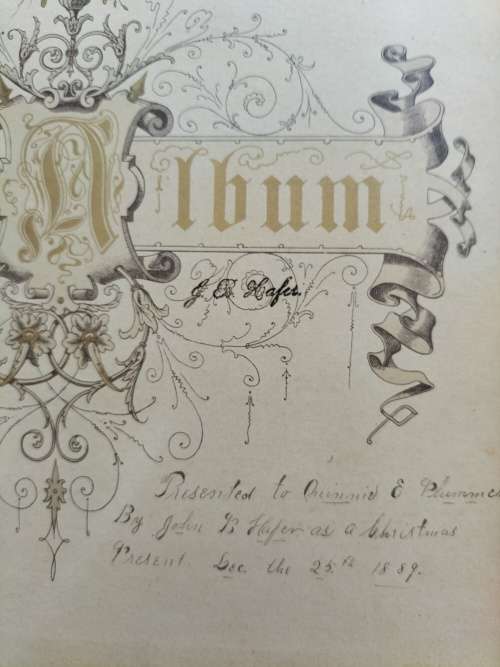 Album
J. B. Hafer.
Presented to E
By John B Hafer as a Christmas
Present. Dec. the 25.th 1889.